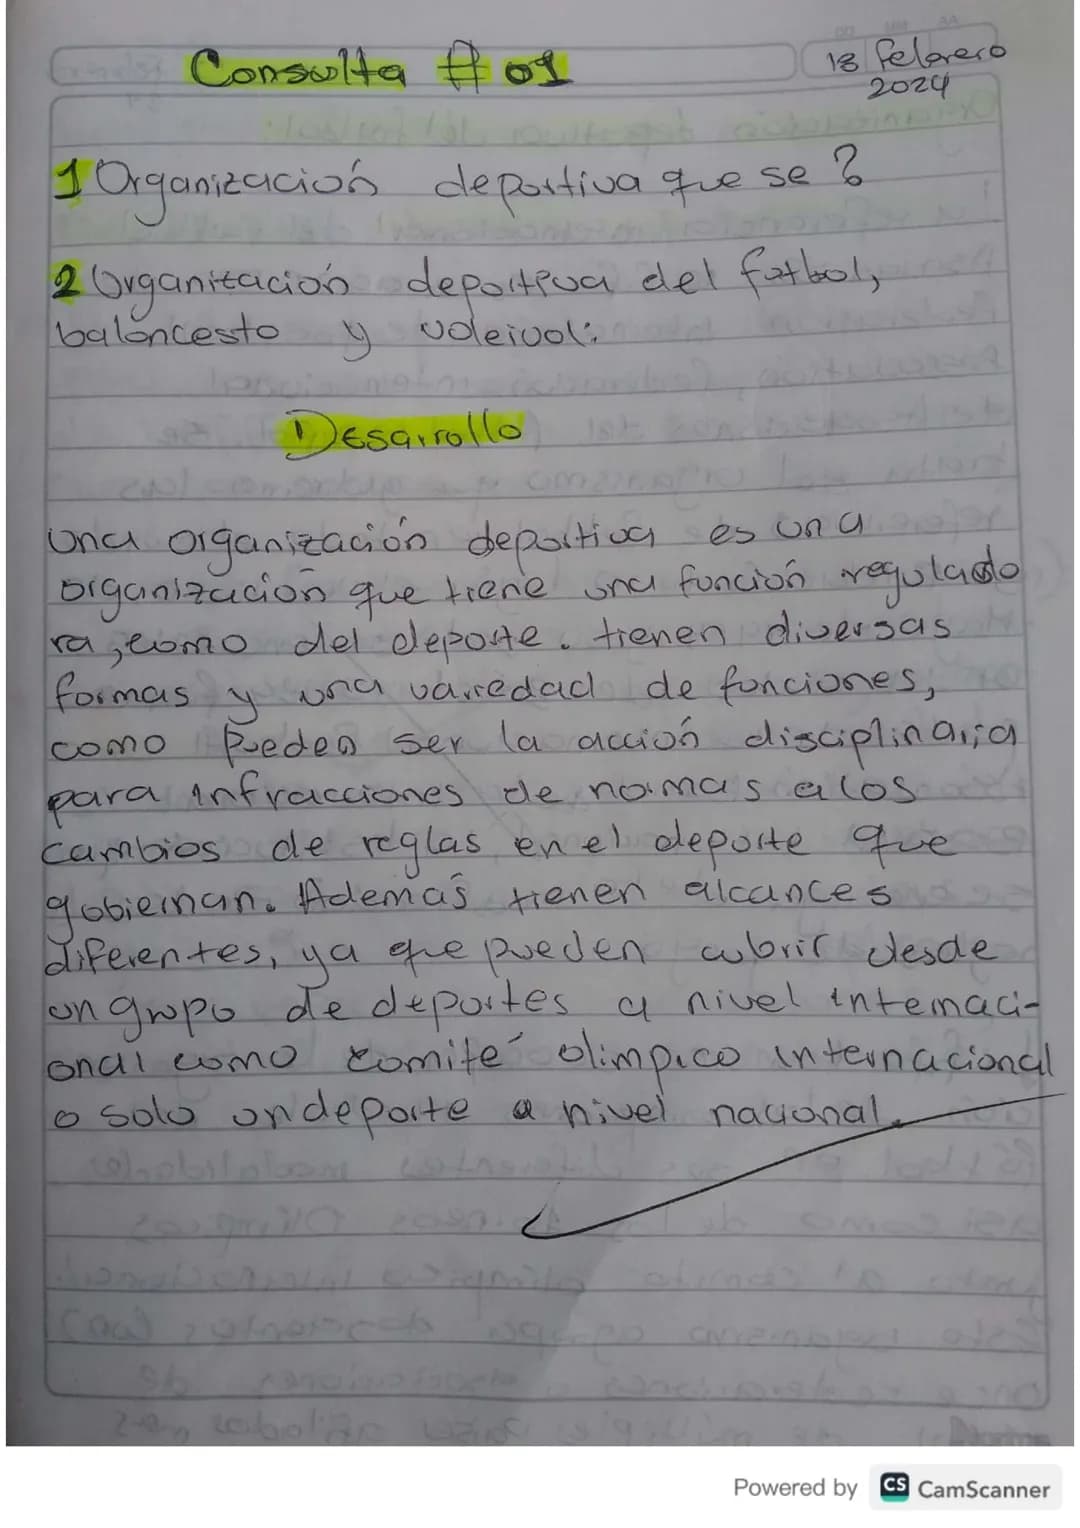 Consulta # 01
13 febrero
2024
1 Organización deportiva que se ?
2 Organización deportiva del futbol,
baloncesto y voleivol:
Desarrollo
Una organización deportiva es una
organización que tiene una función regulado
ra, como del deporte. tienen diversas
formas y una variedad de funciones,
como Pueden ser la acción disciplinaria
para infracciones de normas a los
cambios de reglas en el deporte que
gobiernan. Además tienen alcances
diferentes, ya que pueden cubrir desde
un grupo de deportes a nivel internaci-
onal como comité olimpico internacional
o solo un deporte a nivel nacional.
Powered by CS CamScanner